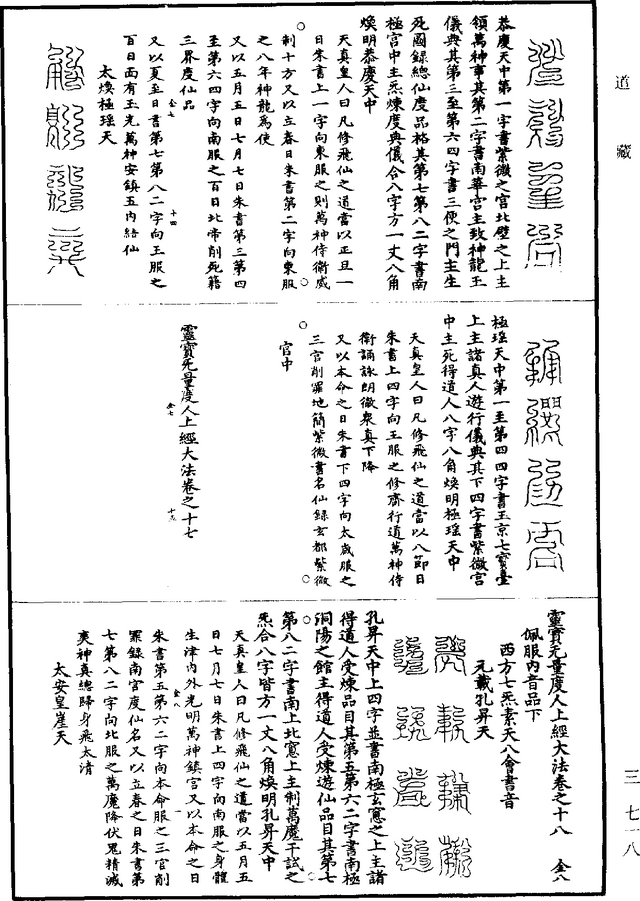 道藏
恭慶天中第一字書紫微之宮北壁之上主
領萬神事其第二字書南華宮主致神龍王
儀典其第三至第六四字書三便之門主生
死圖錄總仙度品格其第七第八二字書南
極宮中主炁煉度典儀合八字方一丈八角
煥明恭慶天中
天真皇人曰凡修飛仙之道當以正旦一
日朱書上一字向東服之則萬神侍衛威
制十方又以立春日朱書第二字向東服
之八年神龍為使
又以五月五日七月七日朱書第三第四
至第六四字向南服之百日北帝削死籍
三界度仙品
金七 十四
又以夏至日書第七第八二字向王服之
百日面有玉光萬神安鎮五內結仙
太煥極瑤天
極瑤天中第一至第四四字書玉京七寶臺
上主諸真人遊行儀典其下四字書紫微宮
中主死得道人八字八角煥明極瑤天中
天真皇人曰凡修飛仙之道當以八節日
朱書上四字向王服之修齋行道萬神侍
衛誦詠朗徹眾真下降
又以本命之日朱書下四字向太歲服之
三官削罪地簡紫微書名仙錄玄都紫微
宮中
靈寶无量度人上經大法卷之十七
金七 十五
靈寶无量度人上經大法卷之十八 金八
佩服內音品下
西方七炁素天八會書音
元載孔昇天
孔昇天中上四字並書南極玄窻之上主諸
得道人受煉品目其第五第六二字書南極
洞陽之館主得道人受煉遊仙品目其第七
第八二字書南上北窻上主制萬魔干試之
炁合八字皆方一丈八角煥明孔昇天中
天真皇人曰凡修飛仙之道當以五月五
日七月七日朱書上四字向南服之身體
生津內外光明萬神鎮宮又以本命之日
金八 一
朱書第五第六二字向本命服之三官削
罪錄南宮度仙名又以立春之日朱書第
七第八二字向北服之萬魔降伏鬼精滅
爽神真總歸身飛太清
太安皇崖天
三 七一八